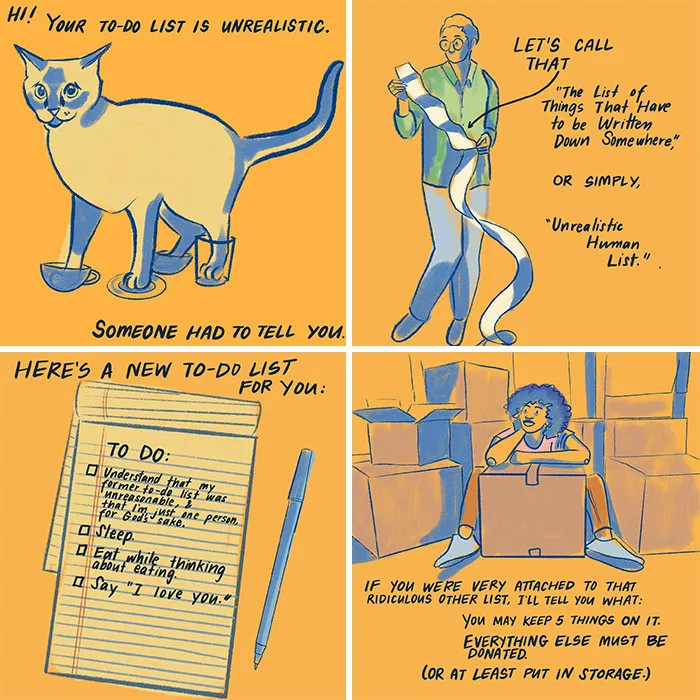 HI! YOUR TO-DO LIST IS UNREALISTIC.
SOMEONE HAD TO TELL YOU.
LET'S CALL
THAT
"The List of
Things That Have
to be Written
Down Somewhere,"
OR SIMPLY,
"Unrealistic
Human
List."
HERE'S A NEW TO-DO LIST
FOR YOU:
TO DO:
Understand that my
former to-do list was
unreasonable, &
that I'm just one person,
for God's sake.
Sleep.
Eat while thinking
about eating.
Say "I love you."
IF YOU WERE VERY ATTACHED TO THAT
RIDICULOUS OTHER LIST, I'LL TELL YOU WHAT:
YOU MAY KEEP 5 THINGS ON IT.
EVERYTHING ELSE MUST BE
DONATED.
(OR AT LEAST PUT IN STORAGE.)